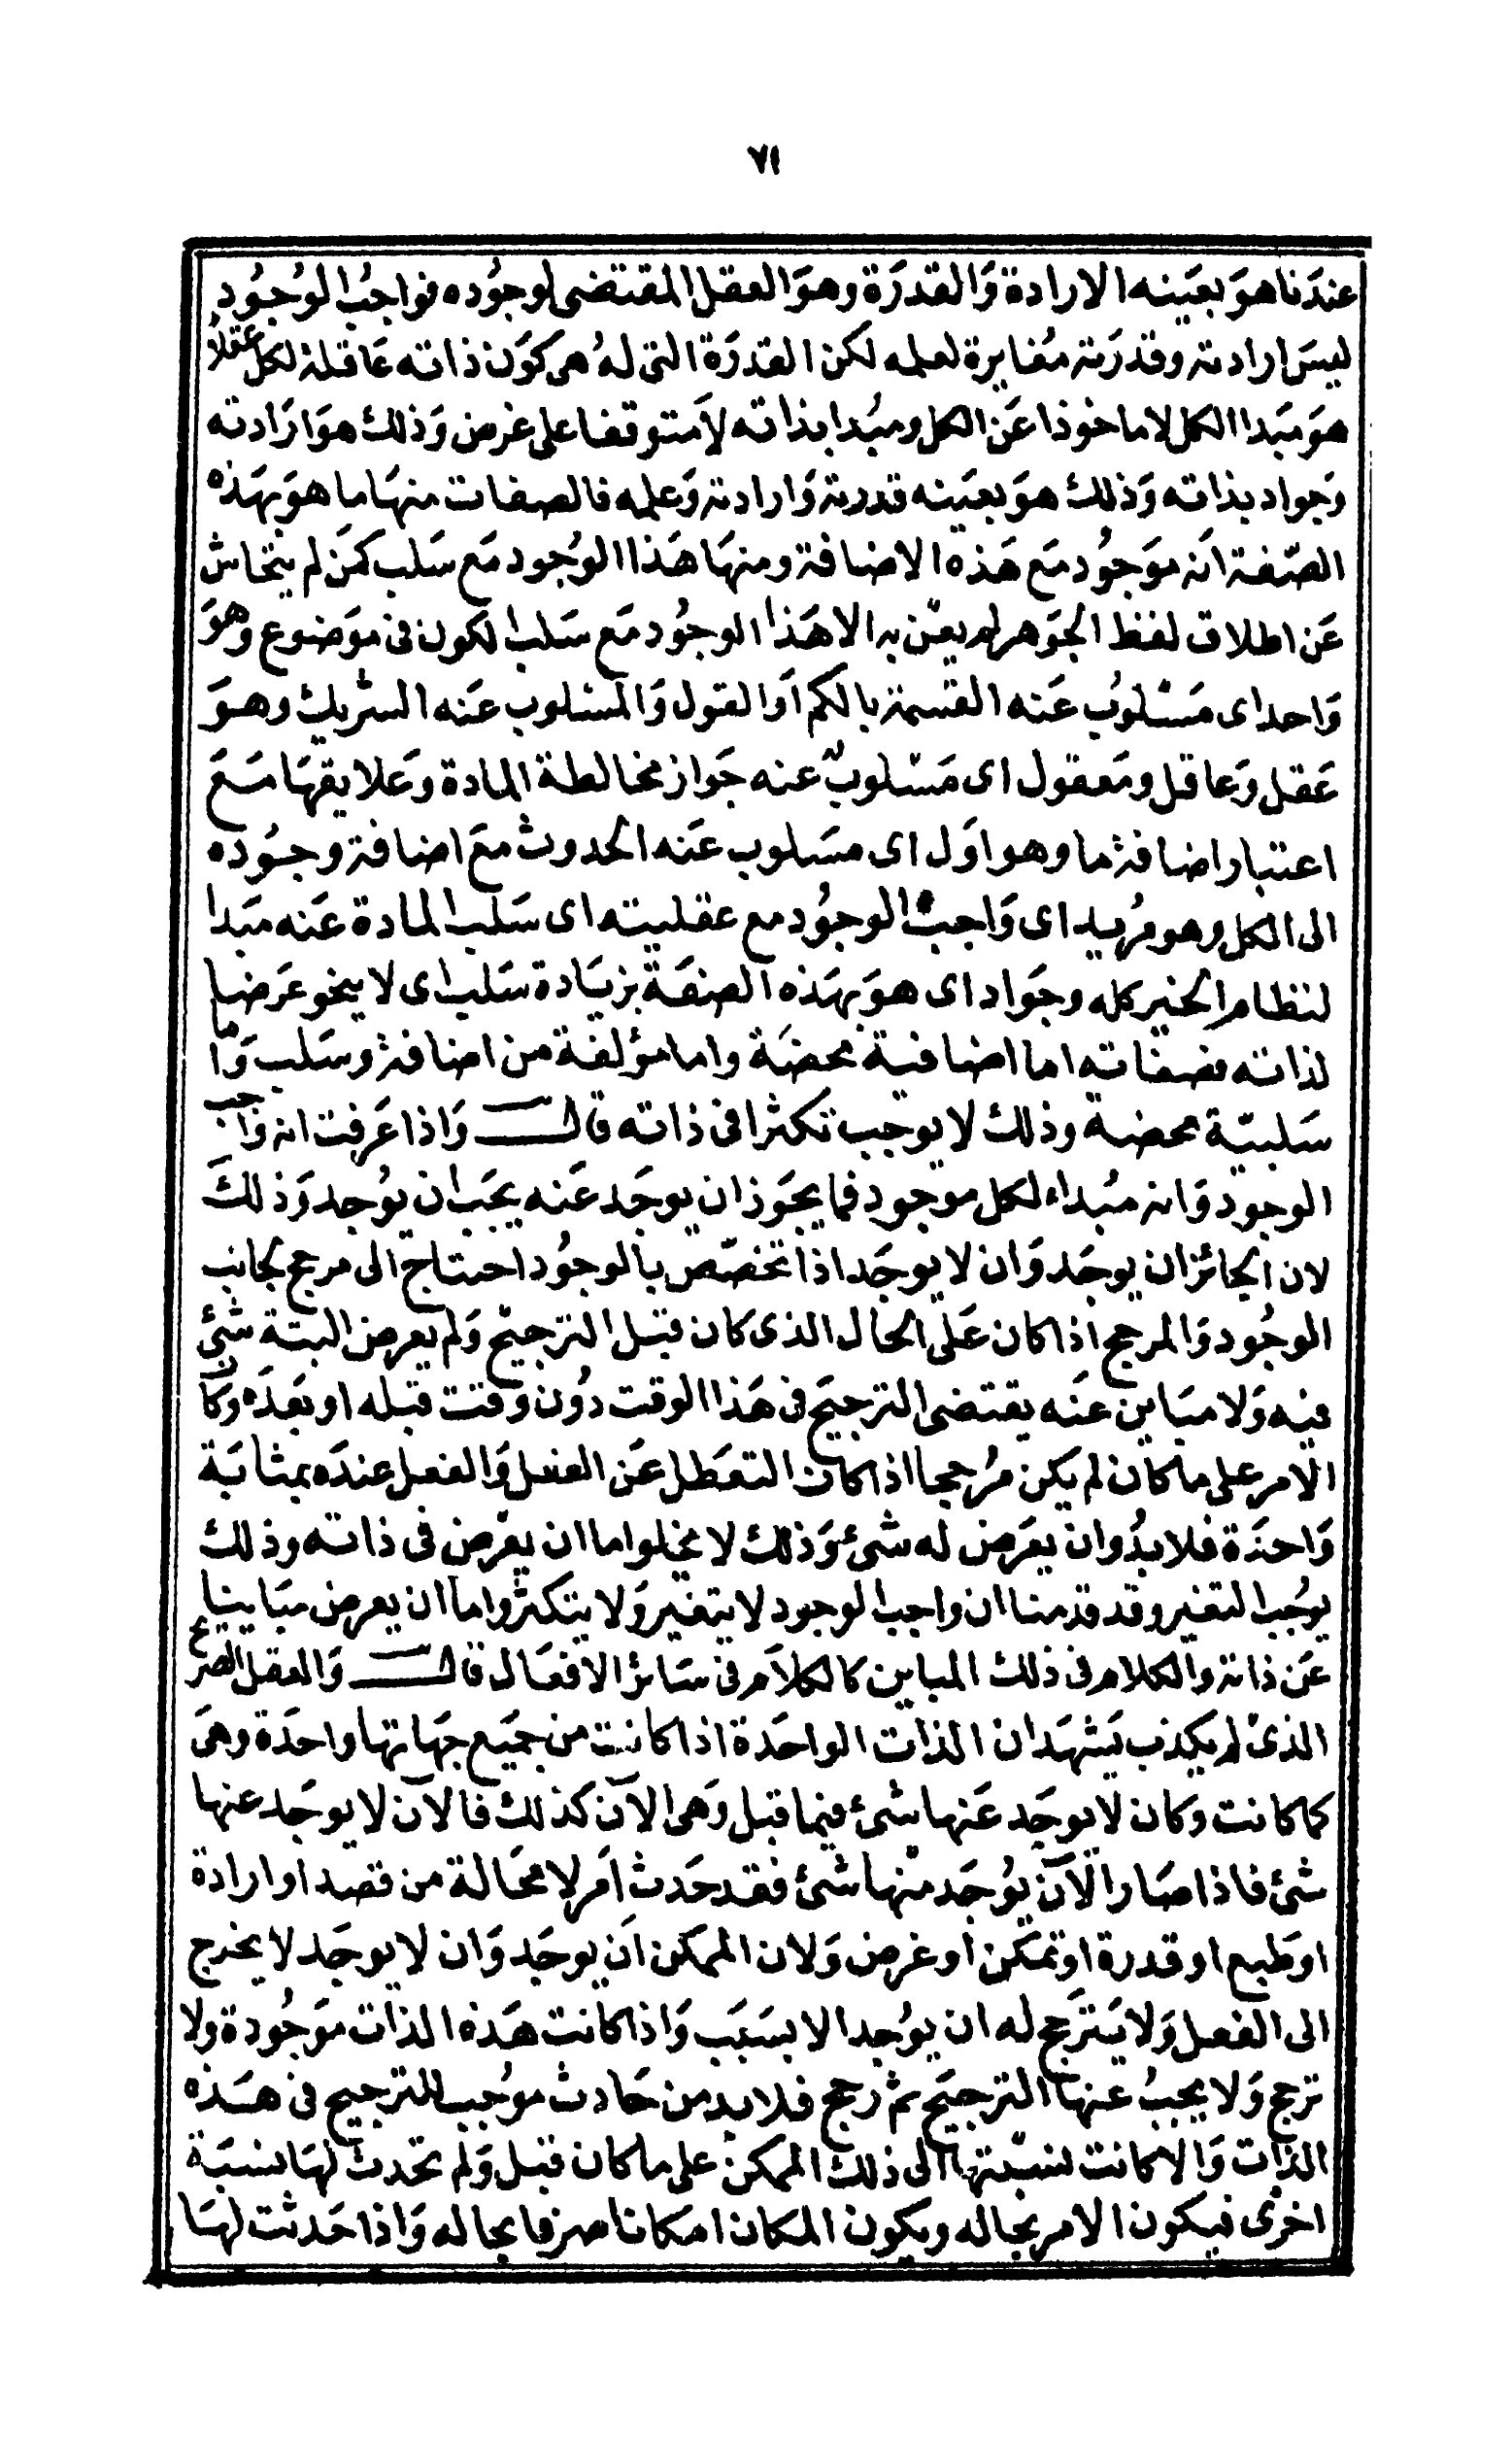 ٧١
عندَنا هوَ بعَينه الارادة وَالقدرَة وهوَ العقل المقتضى لوجوُده فواجبُ الوُجوُد
ليسَ ارادته وقدرَته مُغايرة لعلمه لكن القدرَة التى لهُ هى كوَن ذاته عَاقلة لكل عقلا
هوَ مَبدا الكل لا ماخوذا عَن الكل ومبُدا بذاته لاَ متوقفا على غرض وَذلك هوَ ارَادته
وَجواد بذاته وَذلك هوَ بعَينه قدرته وَارادته وَعلمه فالصفات منهَا ما هوَ بهَذه
الصّفة انَه موَجوُد مَع هَذه الاضافة ومنهَا هَذا الوُجود مَع سَلب كمَن لم يتحاش
عَن اطلاق لفظ الجوَهر لم يعن به الا هَذا الوجوُد مَع سَلب الكون فى موَضوع وَهوَ
وَاحد اى مَسْلوُب عَنه القسمة بالكم اوَ القول وَالمسْلوب عَنه الشريك وهوَ
عَقل وَعاقل ومَعقول اى مَسْلوبٌ عنه جَواز مخالطة المادة وَعلايقهَا مَعَ
اعتبار اضافة ما وهو اوَل اى مسَلوب عَنه الحدوث معَ اضافة وجوُده
الى الكل وهو مُريد اى وَاجبُ الوجوُد مع عقليته اى سَلب المادة عَنه مبَدا
لنظام الخير كله وجوَاد اى هوَ بهَذه الصفَة بزيَادة سَلب اى لا ينحو غرَضا
لذاته فصفاته اما اضافية محضَة واما مؤلفة من اضافة وسَلب وَاما
سَلبيّة محضة وذلك لا يوَجب تكثرا فى ذاته قال وَاذا عَرفت انه وَاجب
الوجود وَانه مبُداء لكل موجود فما يجوَز ان يوجَد عَنه يجَب ان يوُجد وَذلكَ
لان الجائز ان يوجَد وَان لا يوجَد اذا تخصّص بالوجوُد احتاج الى مرجح لجانب
الوجُود وَالمرجح اذا كان عَلى الحال الذى كان قبل الترجيح وَلم يعرض البتة شئ
فيه وَلا مبَاين عَنه يقتضى الترجيَح فى هَذا الوقت دوُن وقت قبله او بَعدَه وكان
الامر على ما كان لم يكن مُرجحا اذا كان التعَطل عَن الفعل وَالفعل عندَه بمثابَة
وَاحدَة فلا بدُ وان يعرَض له شئ وَذلك لا يخلوا اما ان يعرَض فى ذاته وذلك
يوجُب التغير وقد قدمنا ان واجب الوجود لا يتغير وَلا يتكثر واما ان يعرض مبَاينا
عَن ذاته والكلام فى ذلك المباين كالكلاَم فى سَائر الافعَال قال وَالعقل الصريح
الذى لم يكذب يَشهَد ان الذات الواحَدة اذا كانت من جميَع جهَاتها واحدَة وهىَ
كما كانت وكان لا يوجَد عَنها شئ فيما قبل وَهى الآن كذلك فالآن لا يوجَد عنها
شئ فاذا صَار الآن يوُجَد منها شئ فقد حَدث اَمر لا محَالة من قصد او ارادة
او طَبع او قدرة او تمكَن او غرض وَلان الممكن اَن يوجَد وَان لا يوجَد لا يخرج
الى الفعل وَلا يَترَجح له ان يوُجد الا بسَبَب وَاذا كانت هَذه الذات موَجوُدة ولا
ترجح وَلا يجبُ عنها الترجيَح ثم رجح فلا بد من حَادث موُجب للترجيح فى هَذه
الذات وَالا كانت نسبّتها الى ذلك الممكن على ما كان قبل وَلم تحدث لهَا نسبَة
اخرىَ فيكون الامر بحاله ويكون المكان امكانا صرفا بحاله وَاذا حَدثت لهَا